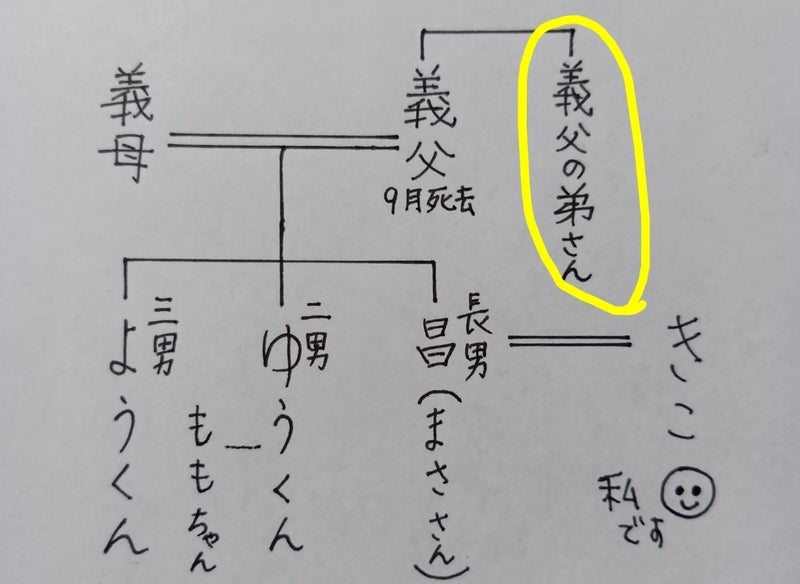 義父の弟さん
義父
9月死去
義母
きこ
私
です
長男
昌(まささん)
二男
ゆうくん
ももちゃん
三男
ようくん